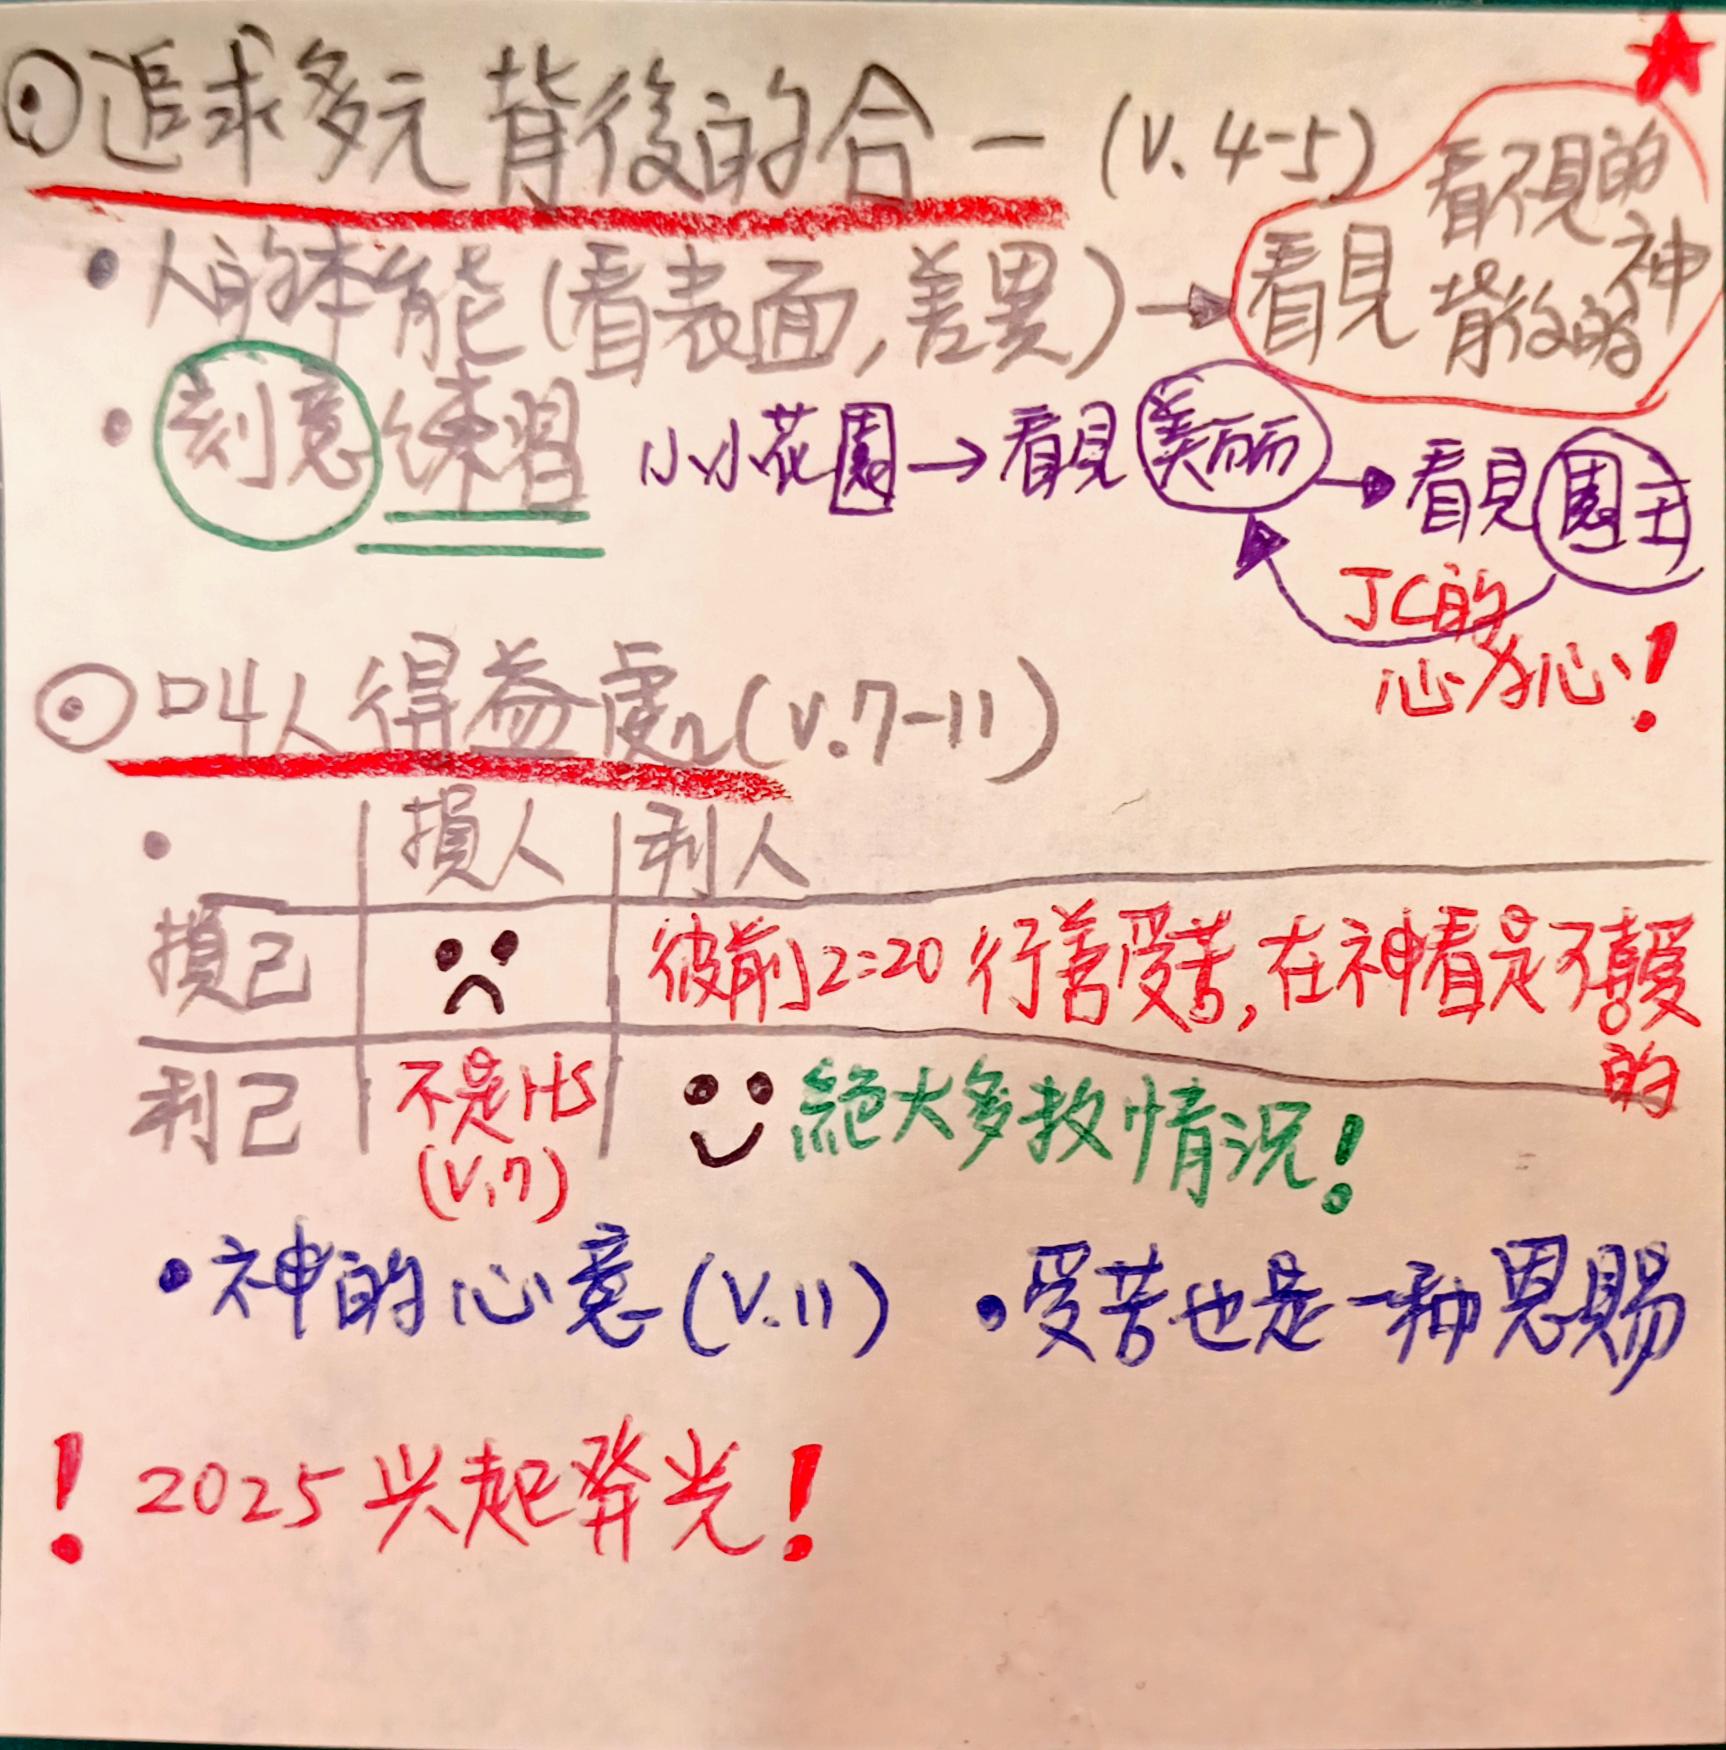 ⊙追求多元背後的合一 (V.4-5)
• 人的本能(看表面,差異) → 看見 看不見的 背後的 神
• 刻意練習 小小花園→看見美丽→看見園主
JC的
心为心!
⊙叫人得益處(V.7-11)
• 損人 利人
損己 彼前2:20 行善受苦,在神看是可喜愛的
利己 不是HS (V.7) 絕大多数情況!
•神的心意(V.11) •受苦也是一种恩賜
! 2025兴起發光!